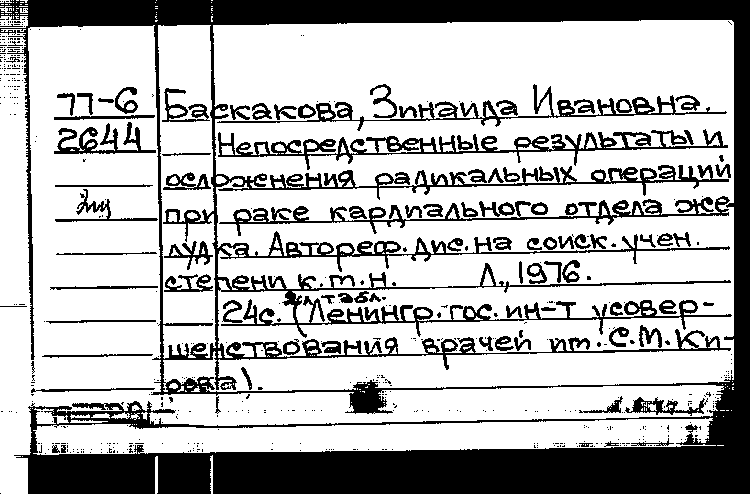 77-6 Баскакова, Зинаида Ивановна.
2644 Непосредственные результаты и
осложнения радикальных операций
при раке кардиального отдела же-
лудка. Автореф. дис. на соиск. учен.
степени к.м.н. Л., 1976.
24с. с табл. (Ленингр. гос. ин-т усовер-
шенствования врачей им. С.М. Ки-
рова).